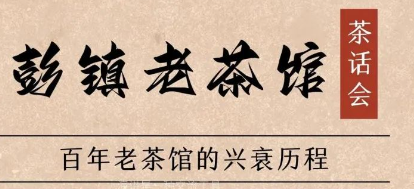 彭镇老茶馆
茶话会
百年老茶馆的兴衰历程